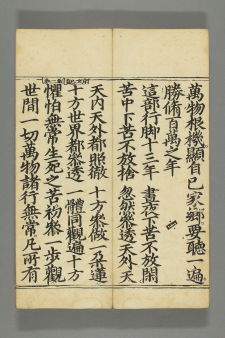 萬物根機顯自己家鄉要聽一遍
勝脩百萬之年
這部行脚十三年 晝夜下苦不放閑
苦中下苦不放捨 忽然參透天外天
天內天外都照徹 十方參做一朶蓮
十方世界都參透 一體同觀遍十方
懼怕無常生死之苦初參一步觀
世間一切萬物諸行無常凡所有